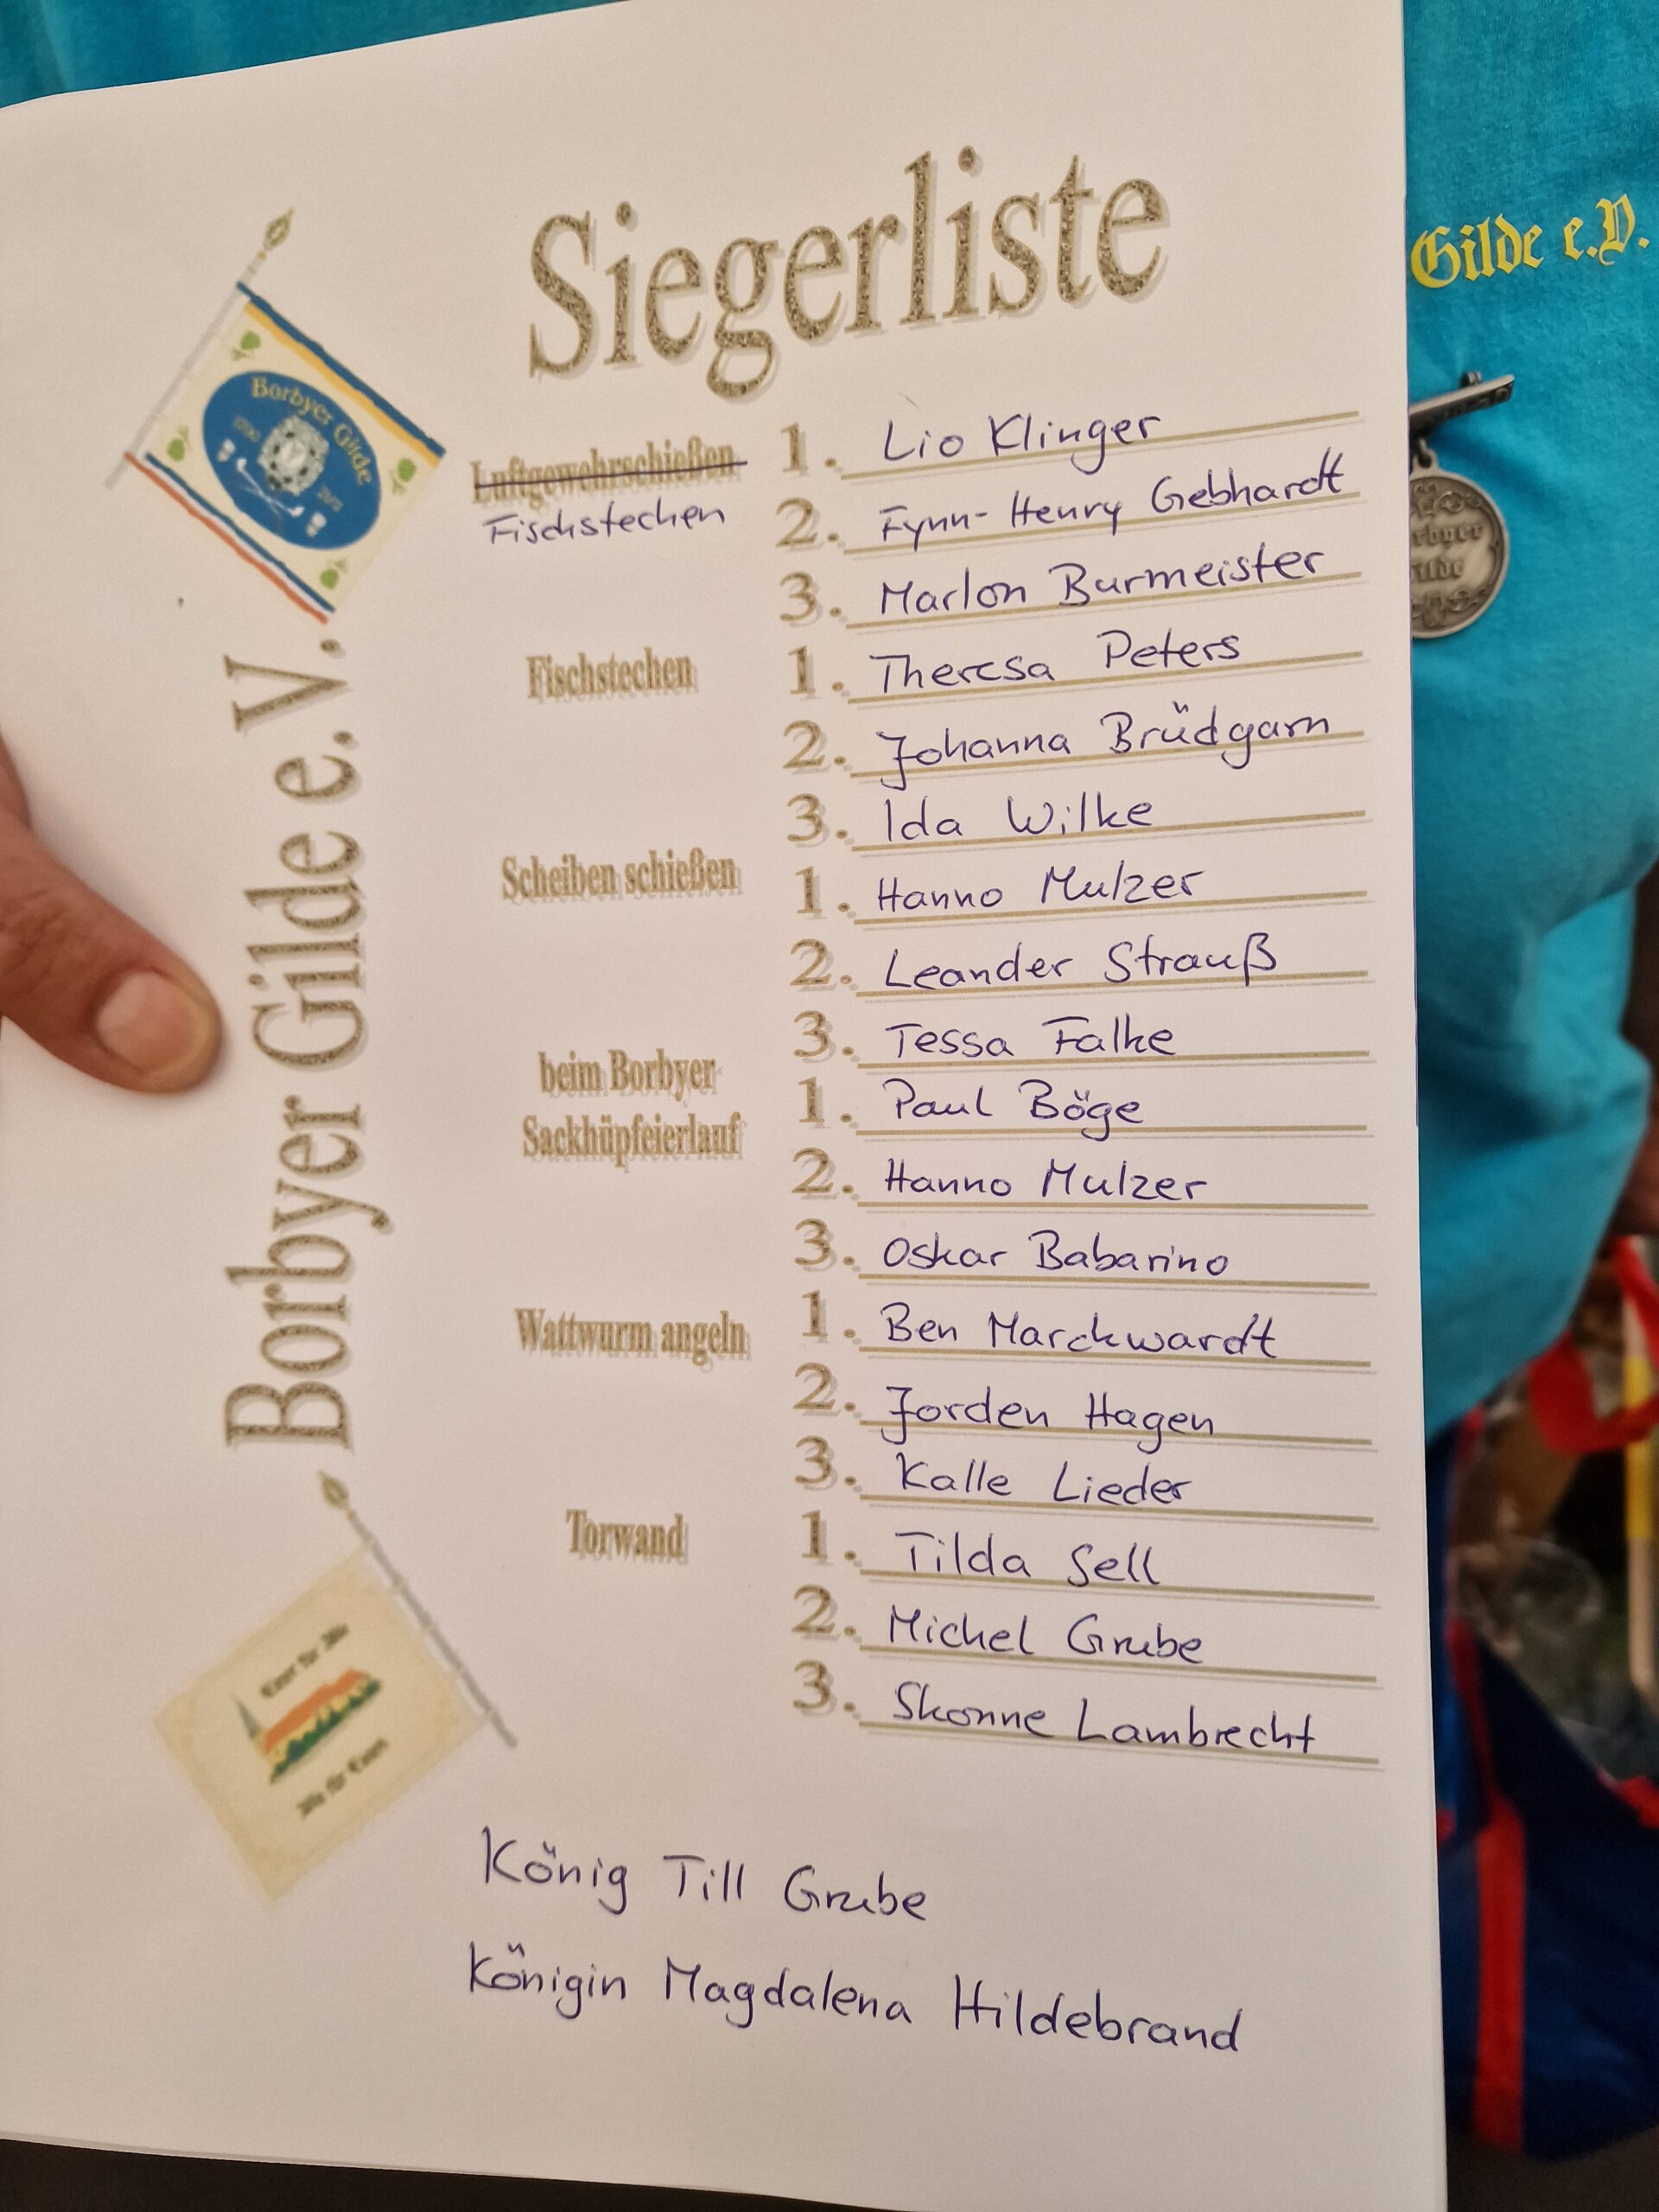 Siegerliste
Gilde e.V.
Borbyer Gilde
Borbyer Gilde e.V.
Luftgewehrschießen
Fischstechen
1. Lio Klinger
2. Fynn-Henry Gebhardt
3. Marlon Burmeister
Fischstechen
1. Theresa Peters
2. Johanna Brüdgam
3. Ida Wilke
Scheiben schießen
1. Hanno Mulzer
2. Leander Strauß
3. Tessa Falke
beim Borbyer
Sackhüpfeierlauf
1. Paul Böge
2. Hanno Mulzer
3. Oskar Babarino
Wattwurm angeln
1. Ben Marckwardt
2. Jorden Hagen
3. Kalle Lieder
Torwand
1. Tilda Sell
2. Michel Grube
3. Skonne Lambrecht
Einer für Alle
Alle für Einen
König Till Grube
Königin Magdalena Hildebrand